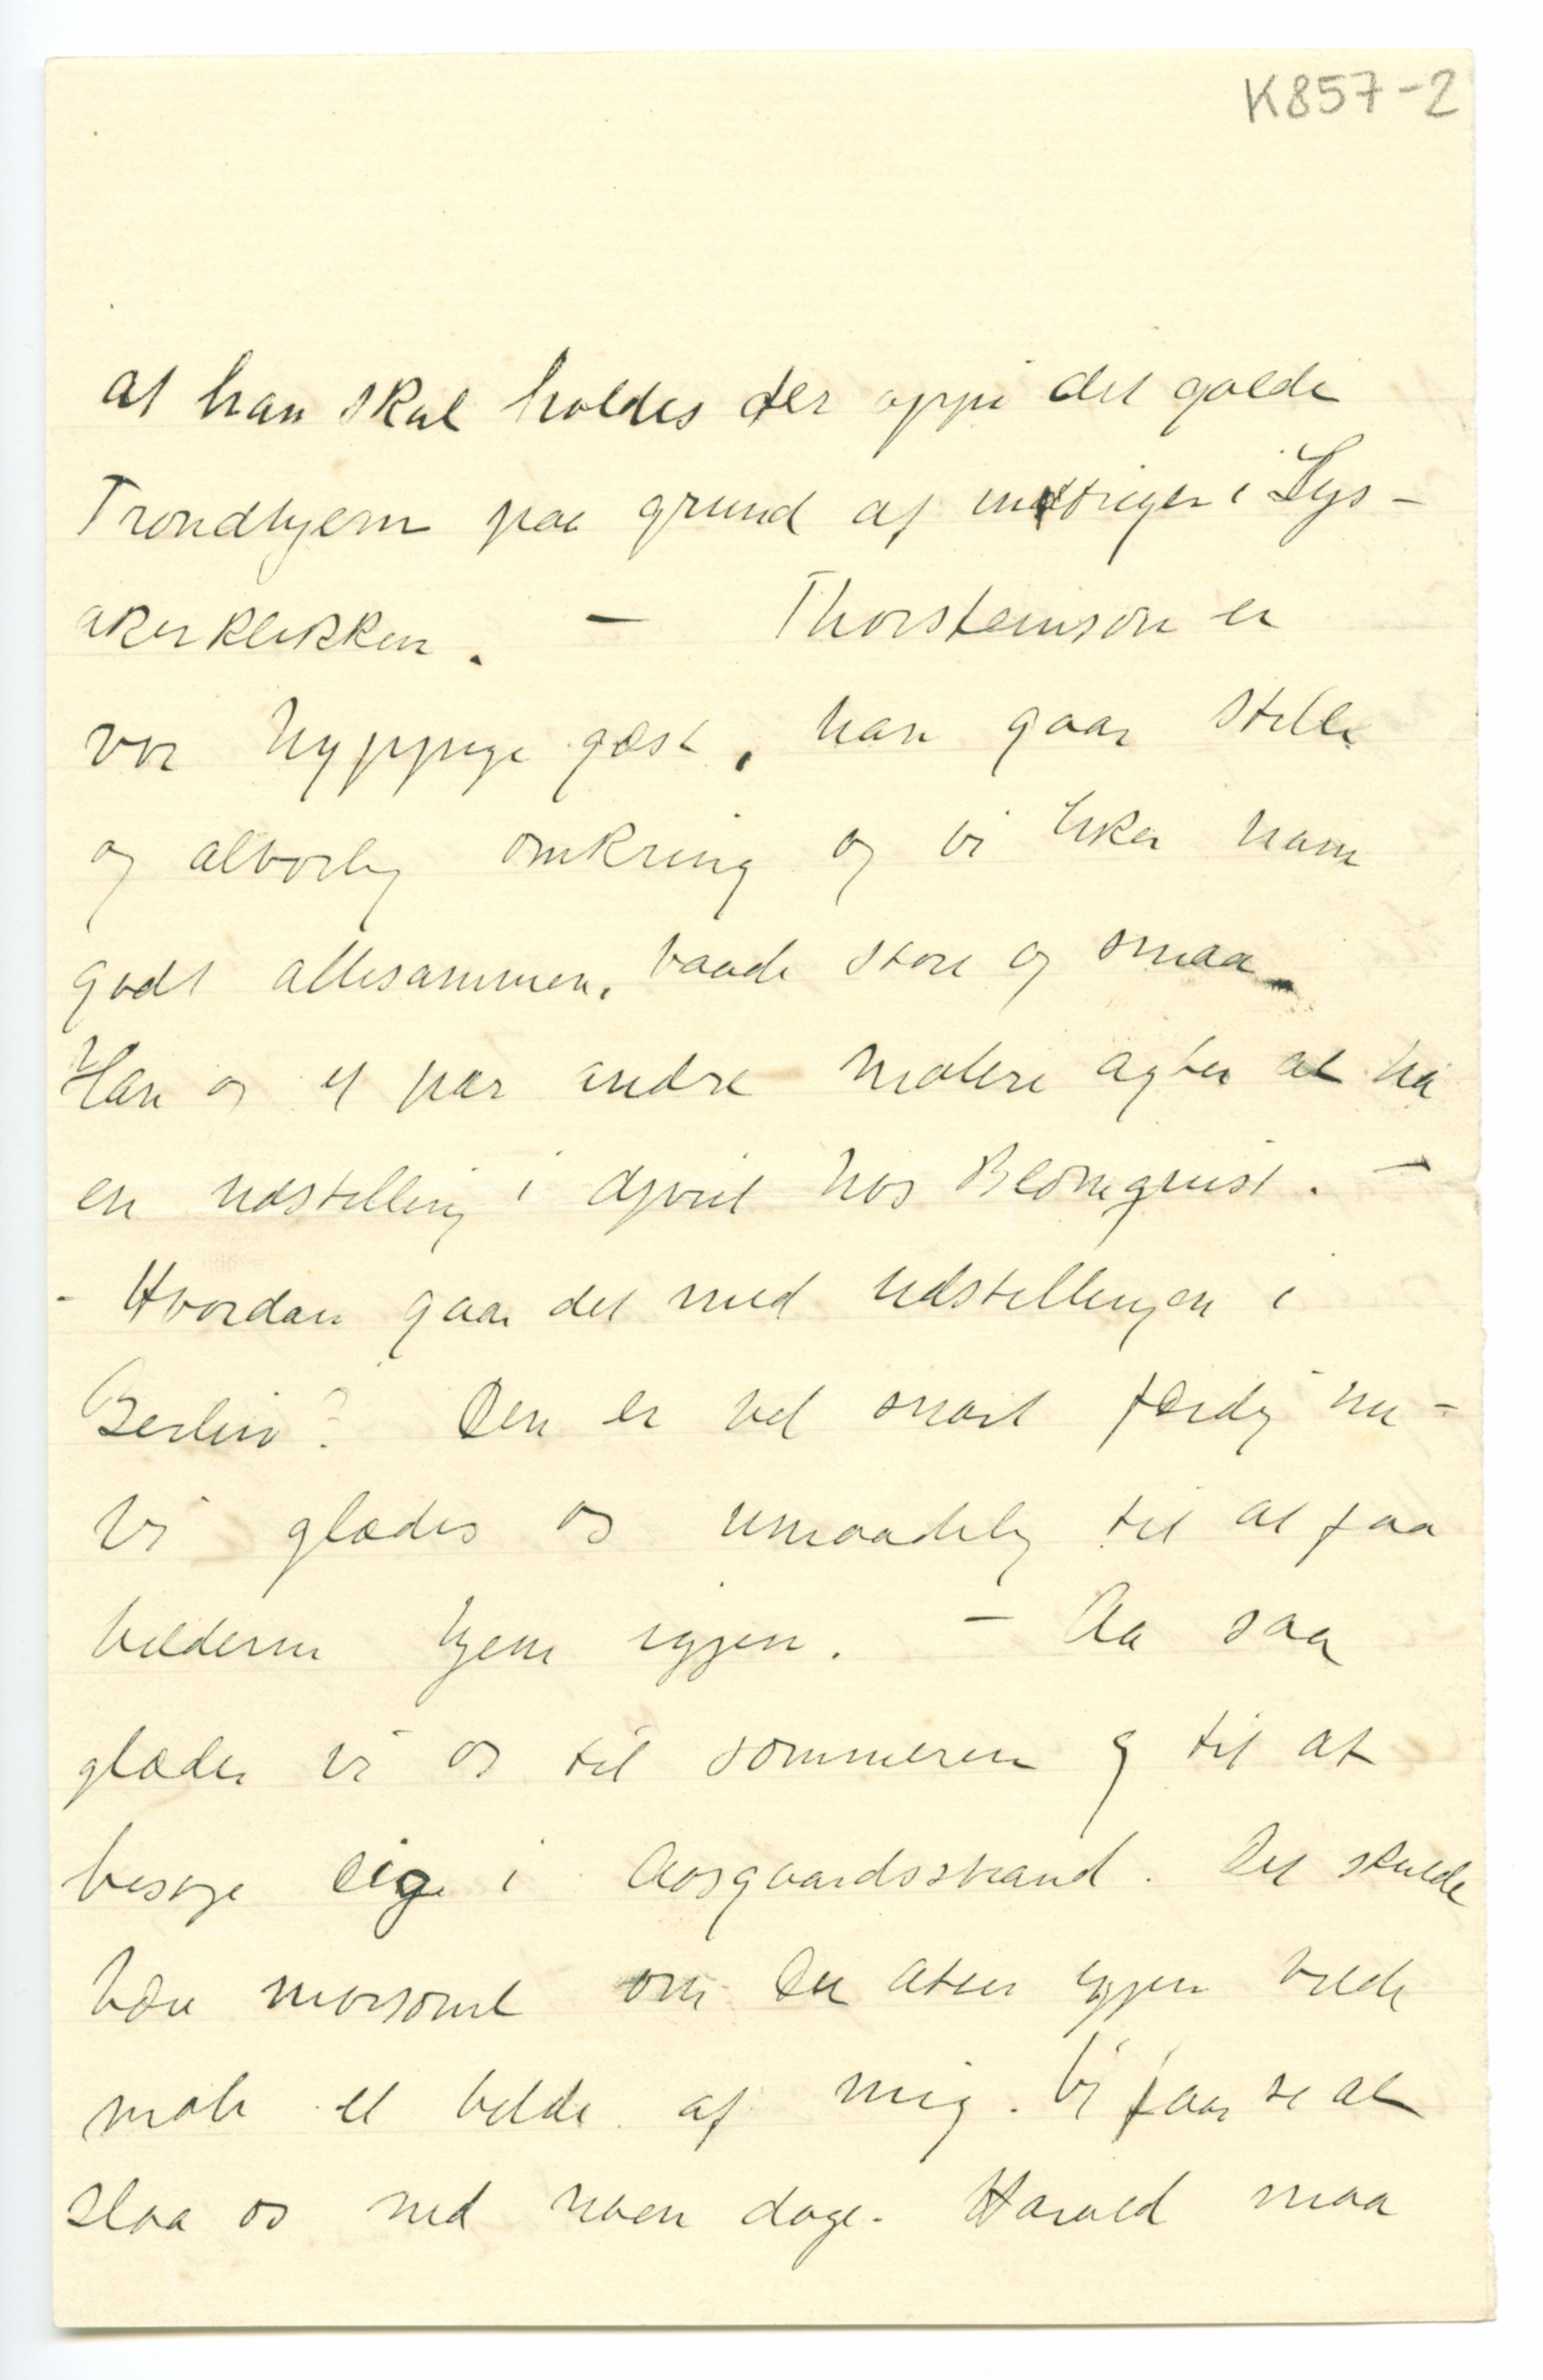 K857-2
at han skal holdes der oppi det golde
Trondhjem paa grund af intriger i Lys-
akerklikken. — Thorsteinson er
vor hyppige gæst, han gaar stille
og alvorlig omkring og vi liker ham
godt allesammen, baade store og smaa.
Han og et par andre malere agter at ha
en udstilling i April hos Blomquist. —
- Hvordan gaar det med udstillingen i
Berlin? Den er vel snart færdig nu -
Vi glædes os umaadelig til at faa
billederne hjem igjen. — Aa saa
glæder vi os til sommeren og til at
besøge Dig i Aasgaardsstrand. Det skulde
være morsomt om Du atter igjen vilde
male et billede af mig. Vi faar se at
slaa os ned noen dage. Harald maa